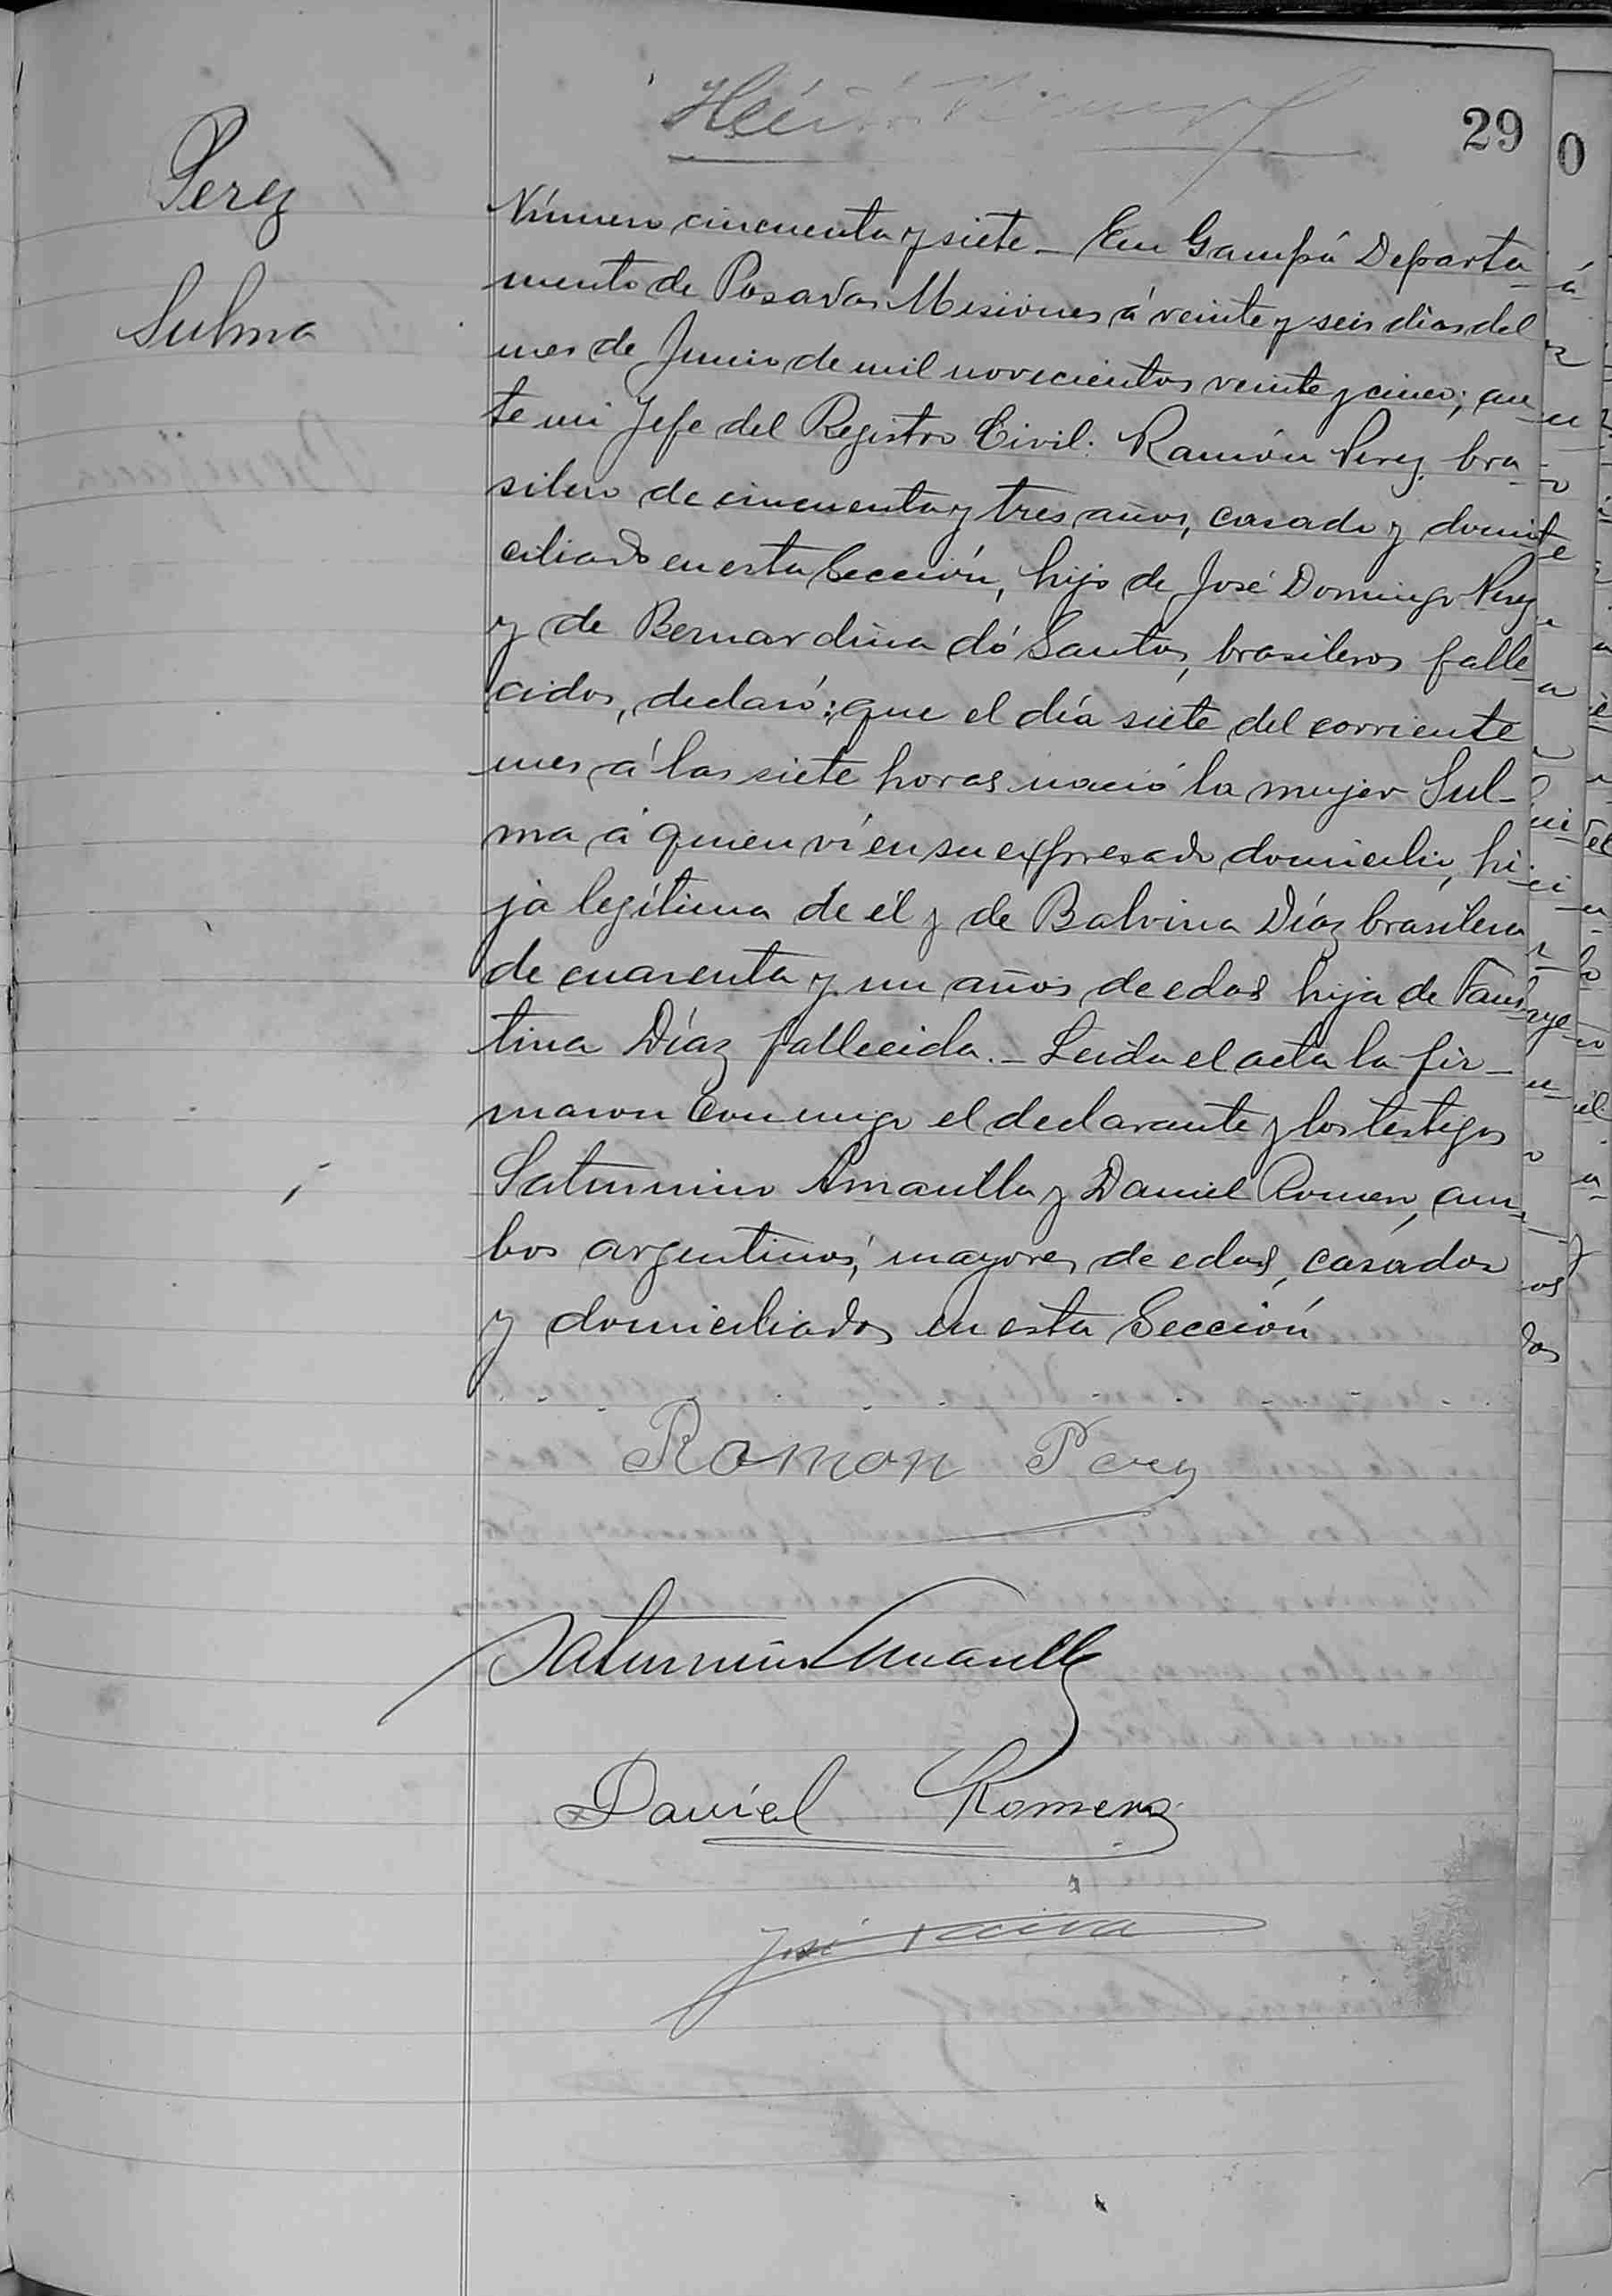 29
0
Perez
Sulma
Número cincuenta y siete _ En Garupá Departa-
mento de Posadas Misiones á veinte y seis días del
mes de Junio de mil novecientos veinte y cinco; an
te mi Jefe del Registro Civil: Ramón Perez bra-
silero de cincuenta y tres años, casado y domi-
ciliado en esta Sección, hijo de José Domingo Perez
y de Bernardina dó Santos, brasileros falle-
cidos, declaró: que el día siete del corriente
mes á las siete horas nació la mujer Sul-
ma á quien ví en su expresado domicilio, hi-
ja legítima de él y de Balvina Díaz brasilera
de cuarenta y un años de edad hija de Faus
tina Díaz fallecida. _ Leida el acta la fir_
maron conmigo el declarante y los testigos
Saturnino Amarilla y Daniel Romero, am-
bos argentinos, mayores de edad, casados
y domiciliados en esta Sección
Ramon Perez
Saturnino Amarilla
Daniel Romero
José